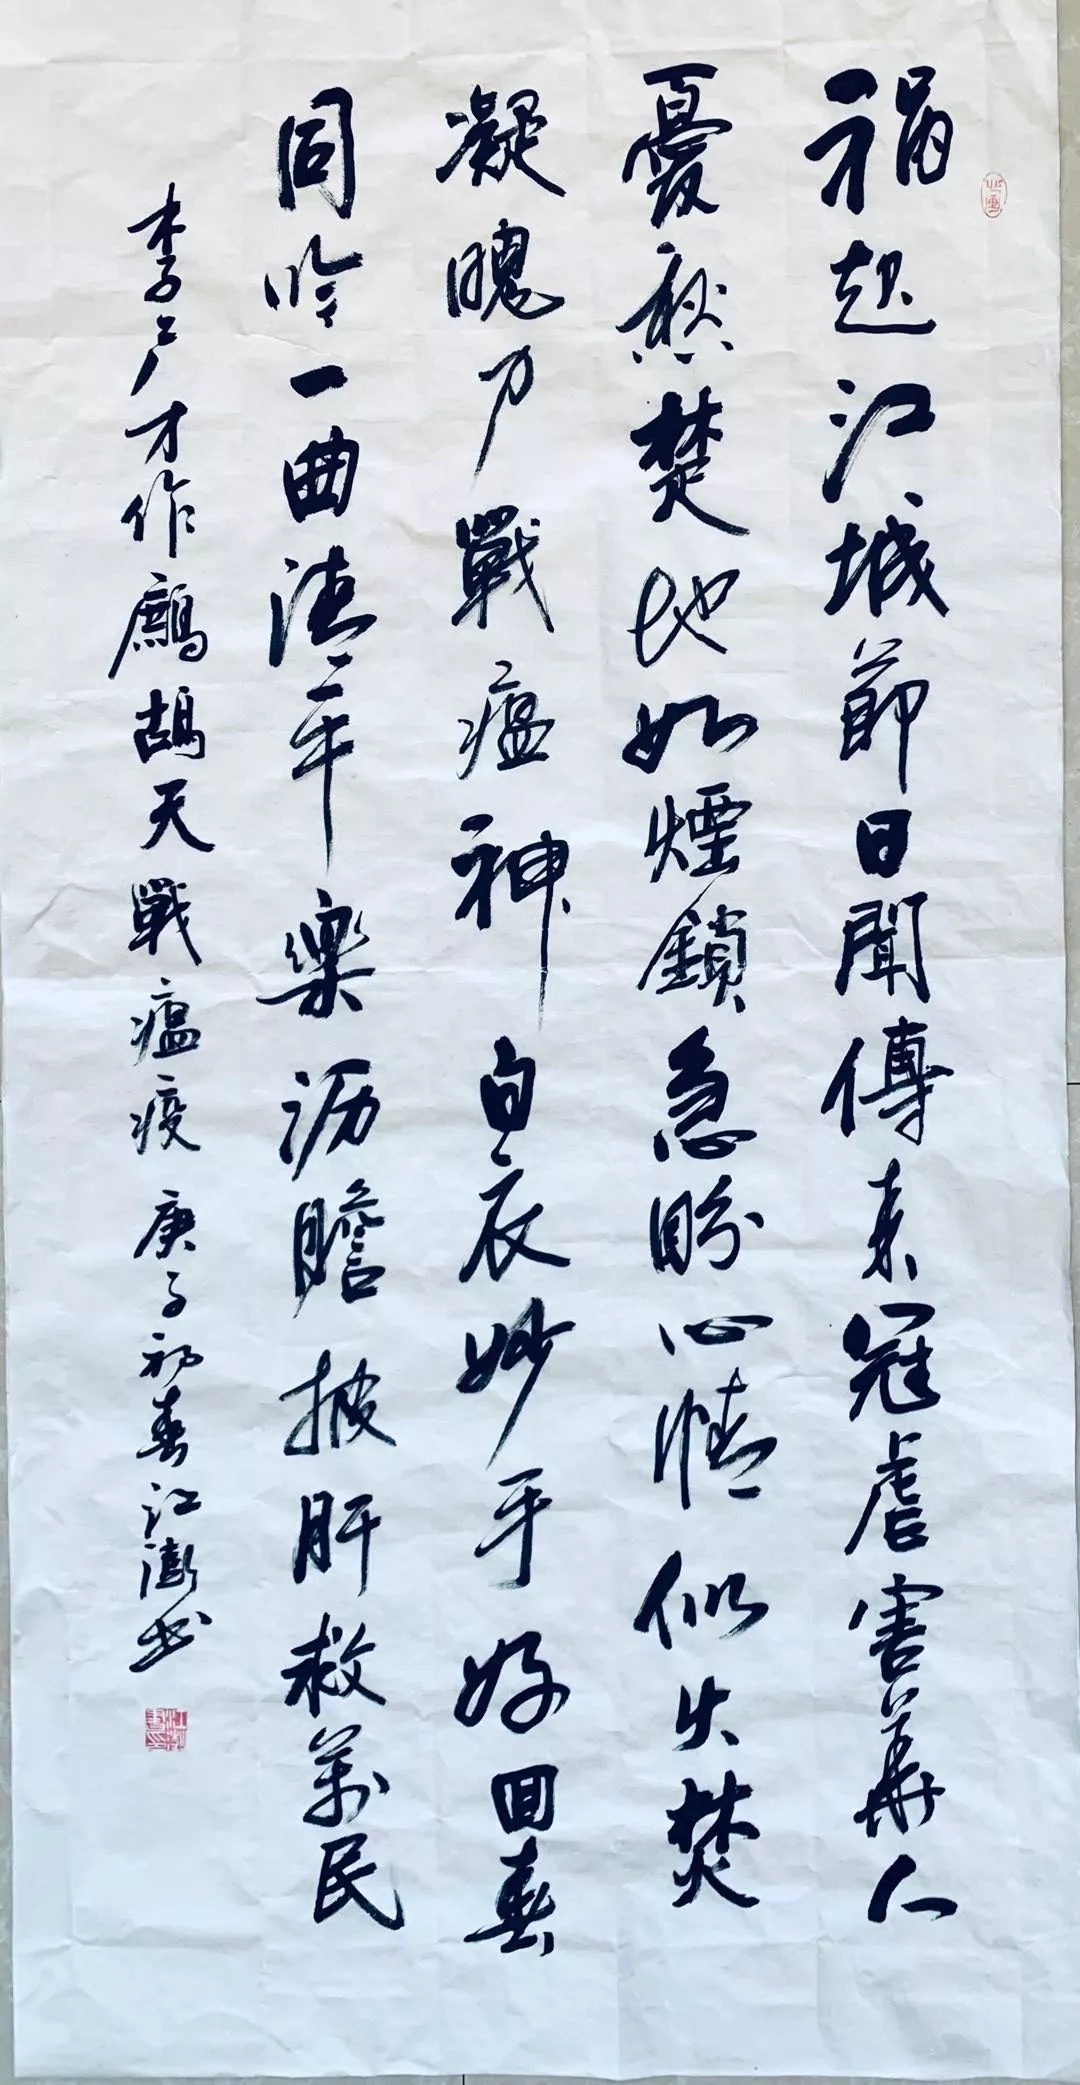 禍起江城節日聞傳来冠虐害華人
憂愁楚地如煙鎖急盼心情似火焚
凝魄力戰瘟神白衣妙手好回春
同吟一曲清平樂沥瞻披肝救萬民
李户才作鷓鴣天戰瘟疫庚子初春江澎书